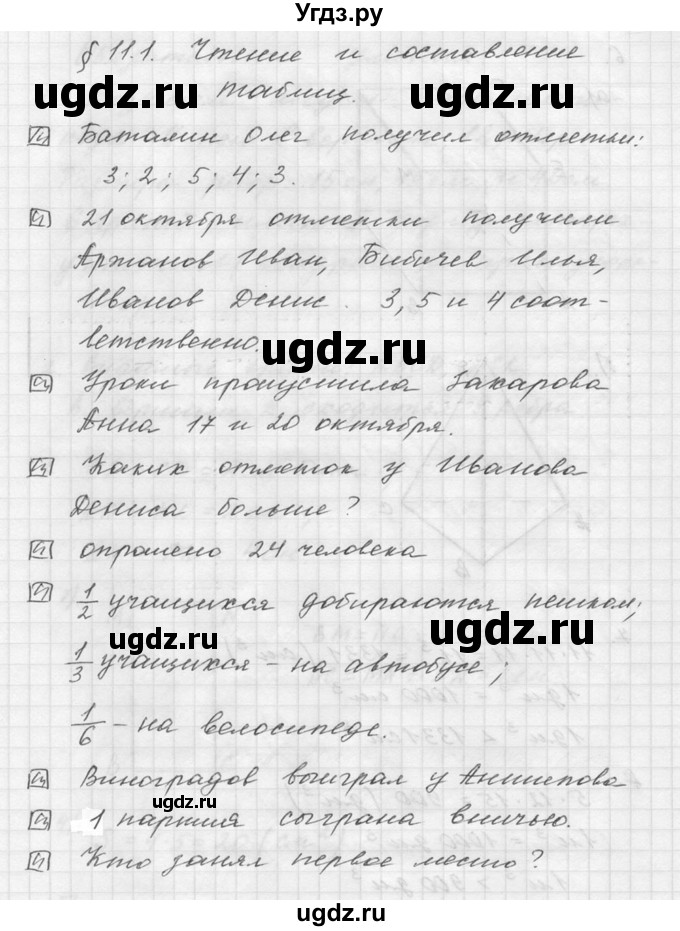 Угдз.ру
§ 11.1. Чтение и составление
ugdz.ru ugdz.ru
таблиц.
Баталин Олег получил отметки:
3; 2; 5; 4; 3.
21 октября отметки получили
Аржанов Иван, Бибичев Илья,
Иванов Денис. 3, 5 и 4 соот-
ветственно.
ugdz.ru
Уроки пропустила Захарова
Анна 17 и 20 октября.
Каких отметок у Иванова
Дениса больше?
опрошено 24 человека
1/2 учащихся добираются пешком;
ugdz.ru
1/3 учащихся - на автобусе;
1/6 - на велосипеде.
Виноградов выиграл у Антипова
ugdz.ru
1 партия сыграна вничью.
Кто занял первое место?
ugdz.ru